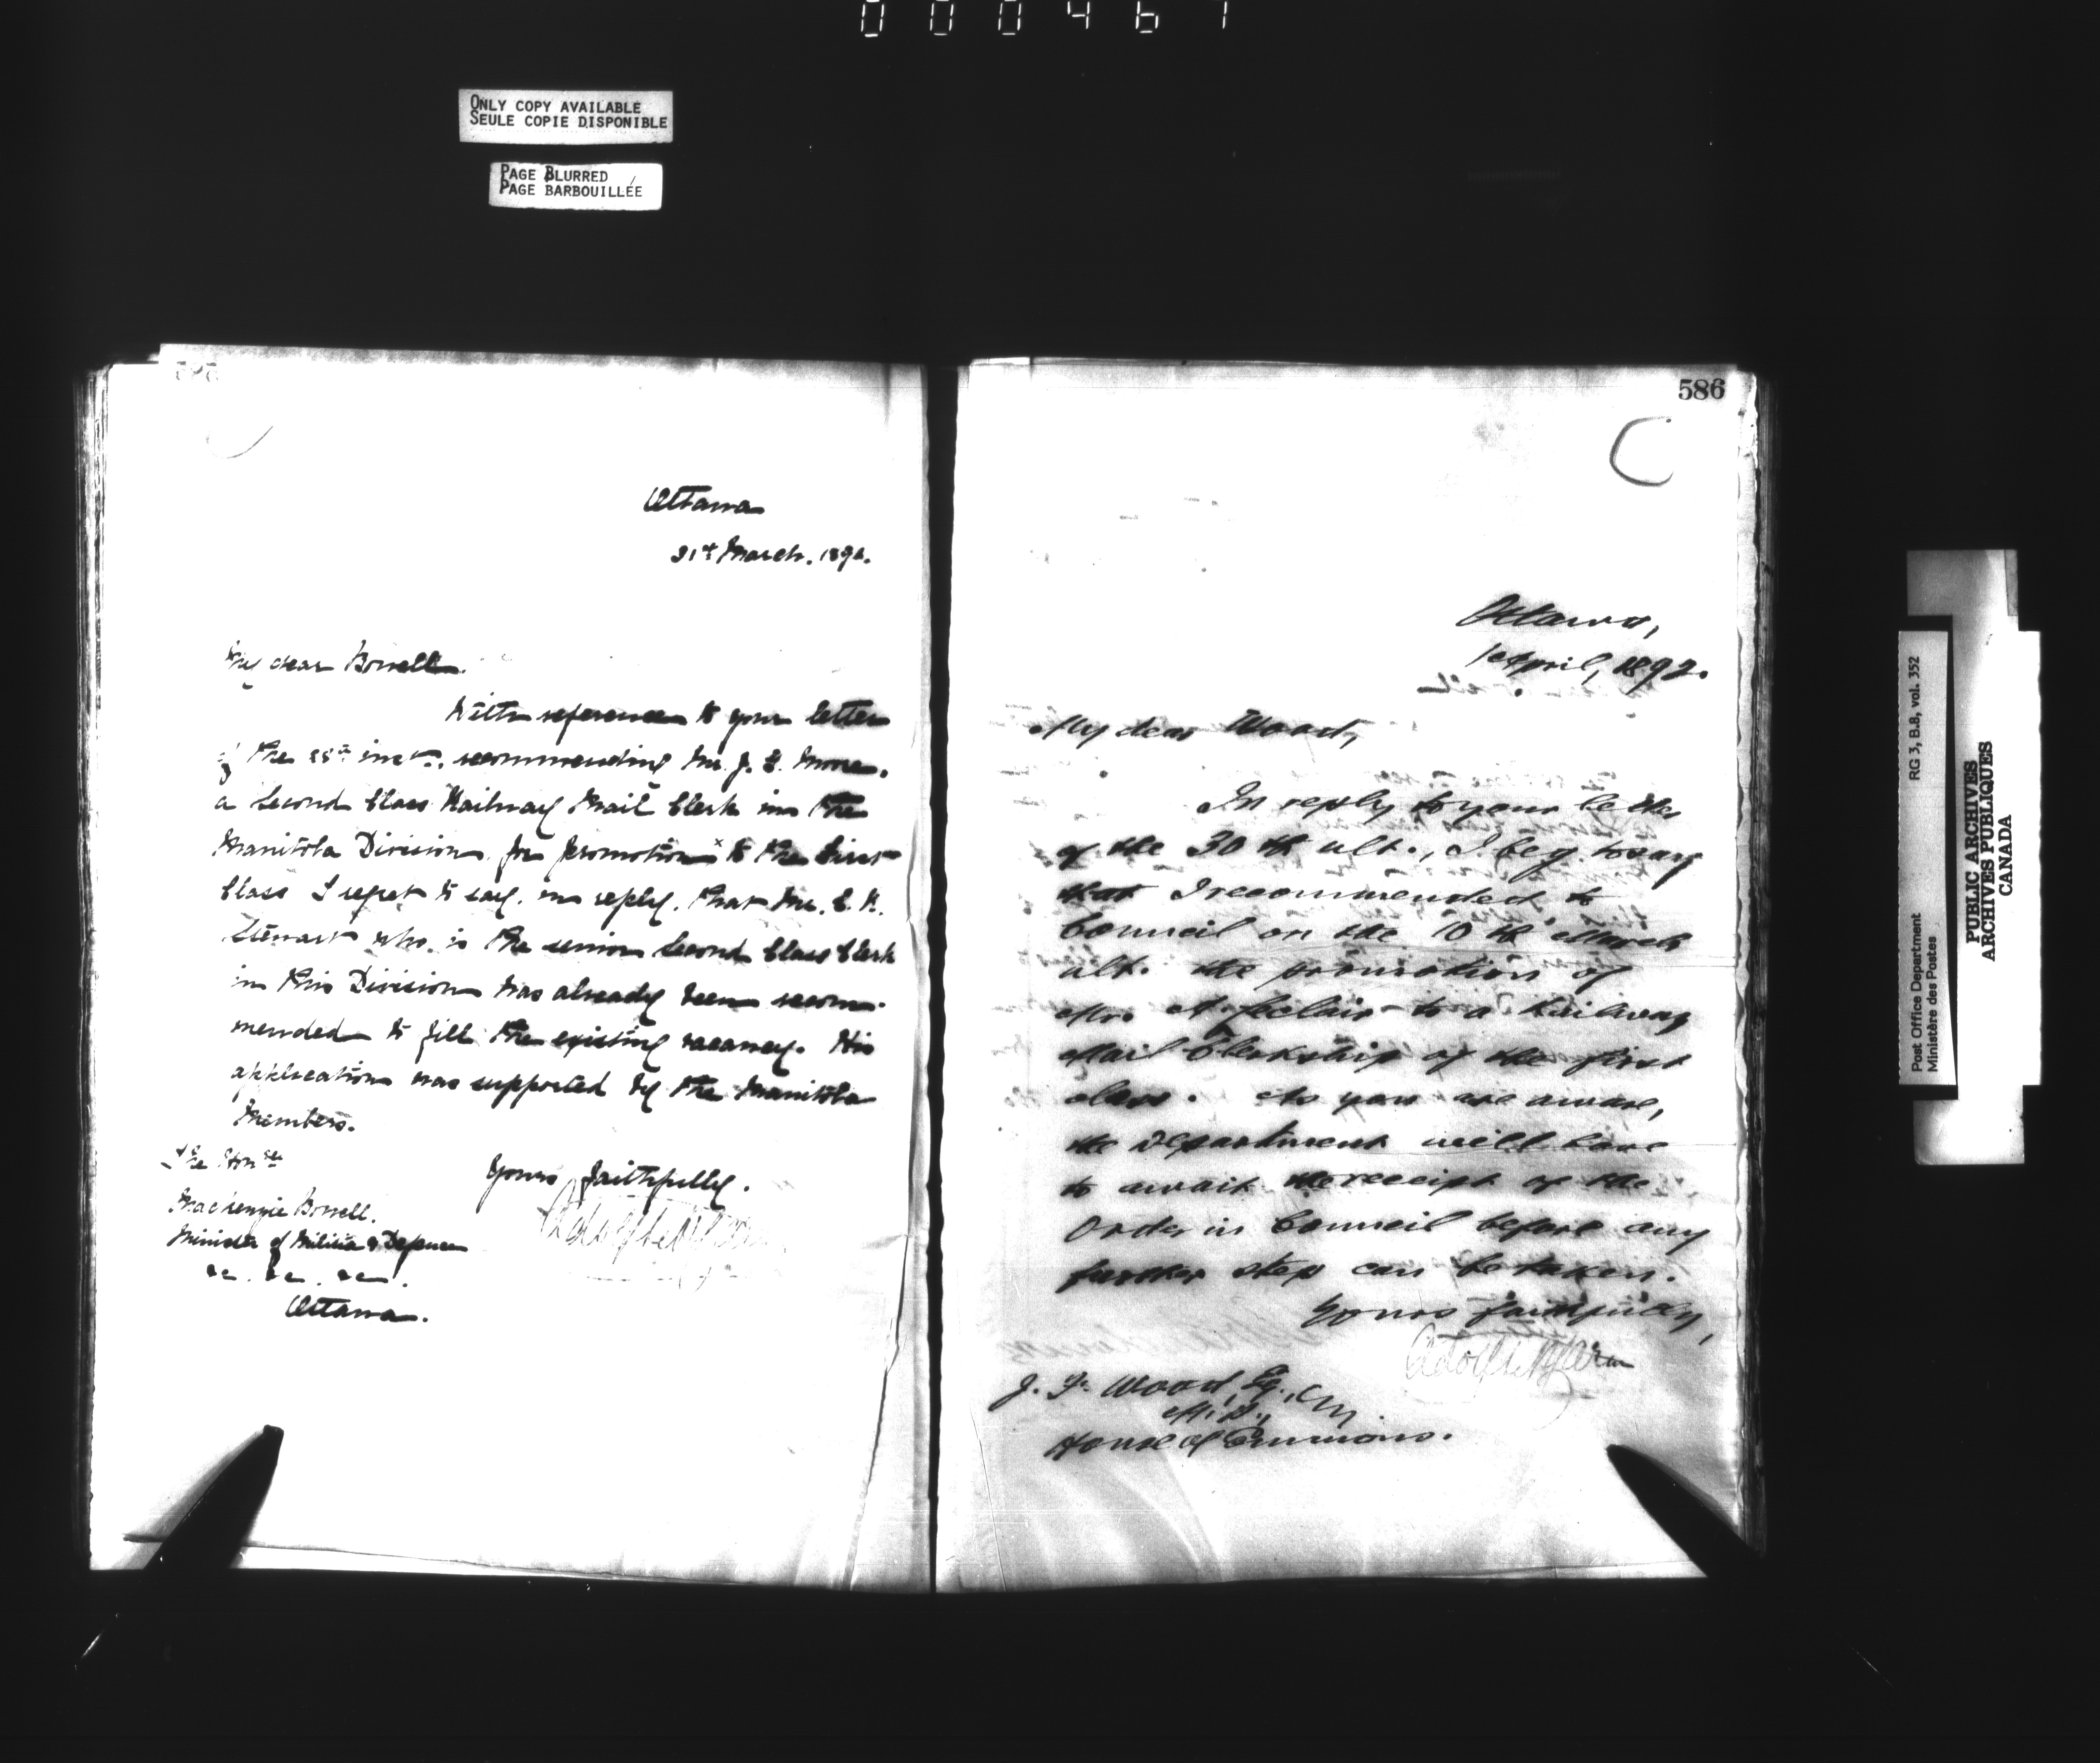 000467
ONLY COPY AVAILABLE
SEULE COPIE DISPONIBLE
PAGE BLURRED
PAGE BARBOUILLÉE
585
Ottawa
31st March. 1892.
My dear Bowell.
With reference to your letter
of the inst., recommending Mr. J. E. Moore.
a Second Class Railway Mail Clerk in the
Manitoba Division for promotion to the First
Class I regret to say, in reply, that Mr. C. H.
Stewart who is the senior Second Class Clerk
in this Division has already been recom-
mended to fill the existing vacancy. His
application was supported by the Manitoba
Members.
Yours faithfully.
The Honble
Mackenzie Bowell.
Minister of Militia & Defence
&c. &c. &c.
Ottawa.
586
C
Ottawa,
1 April, 1892.
My dear Wood,
In reply to your letter
of the 30th ult., I beg to say
that I recommended to
Council on the 10th March
ult. the promotion of
Mr. A. Leclair to a Railway
Mail Clerkship of the first
class. As you are aware,
the Department will have
to await the receipt of the
Order in Council before any
further step can be taken.
Yours faithfully,
J. F. Wood, Esq.,
M.P.,
House of Commons.
Post Office Department RG 3, B.8, vol. 352
Ministère des Postes
PUBLIC ARCHIVES
ARCHIVES PUBLIQUES
CANADA